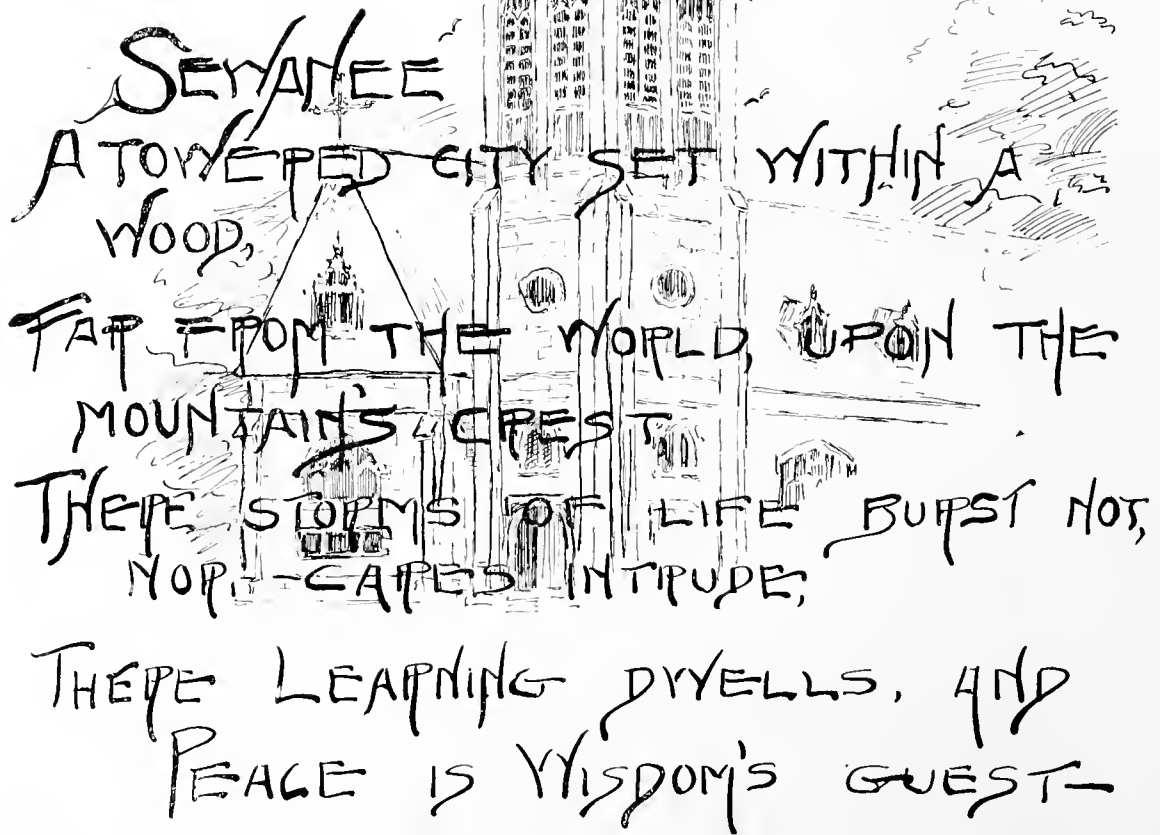 SEWANEE
A TOWERED CITY SET WITHIN A
WOOD,
FAR FROM THE WORLD, UPON THE
MOUNTAIN'S CREST
THERE STORMS OF LIFE BURST NOT,
NOR CARES INTRUDE;
THERE LEARNING DWELLS, AND
PEACE IS WISDOM'S GUEST—